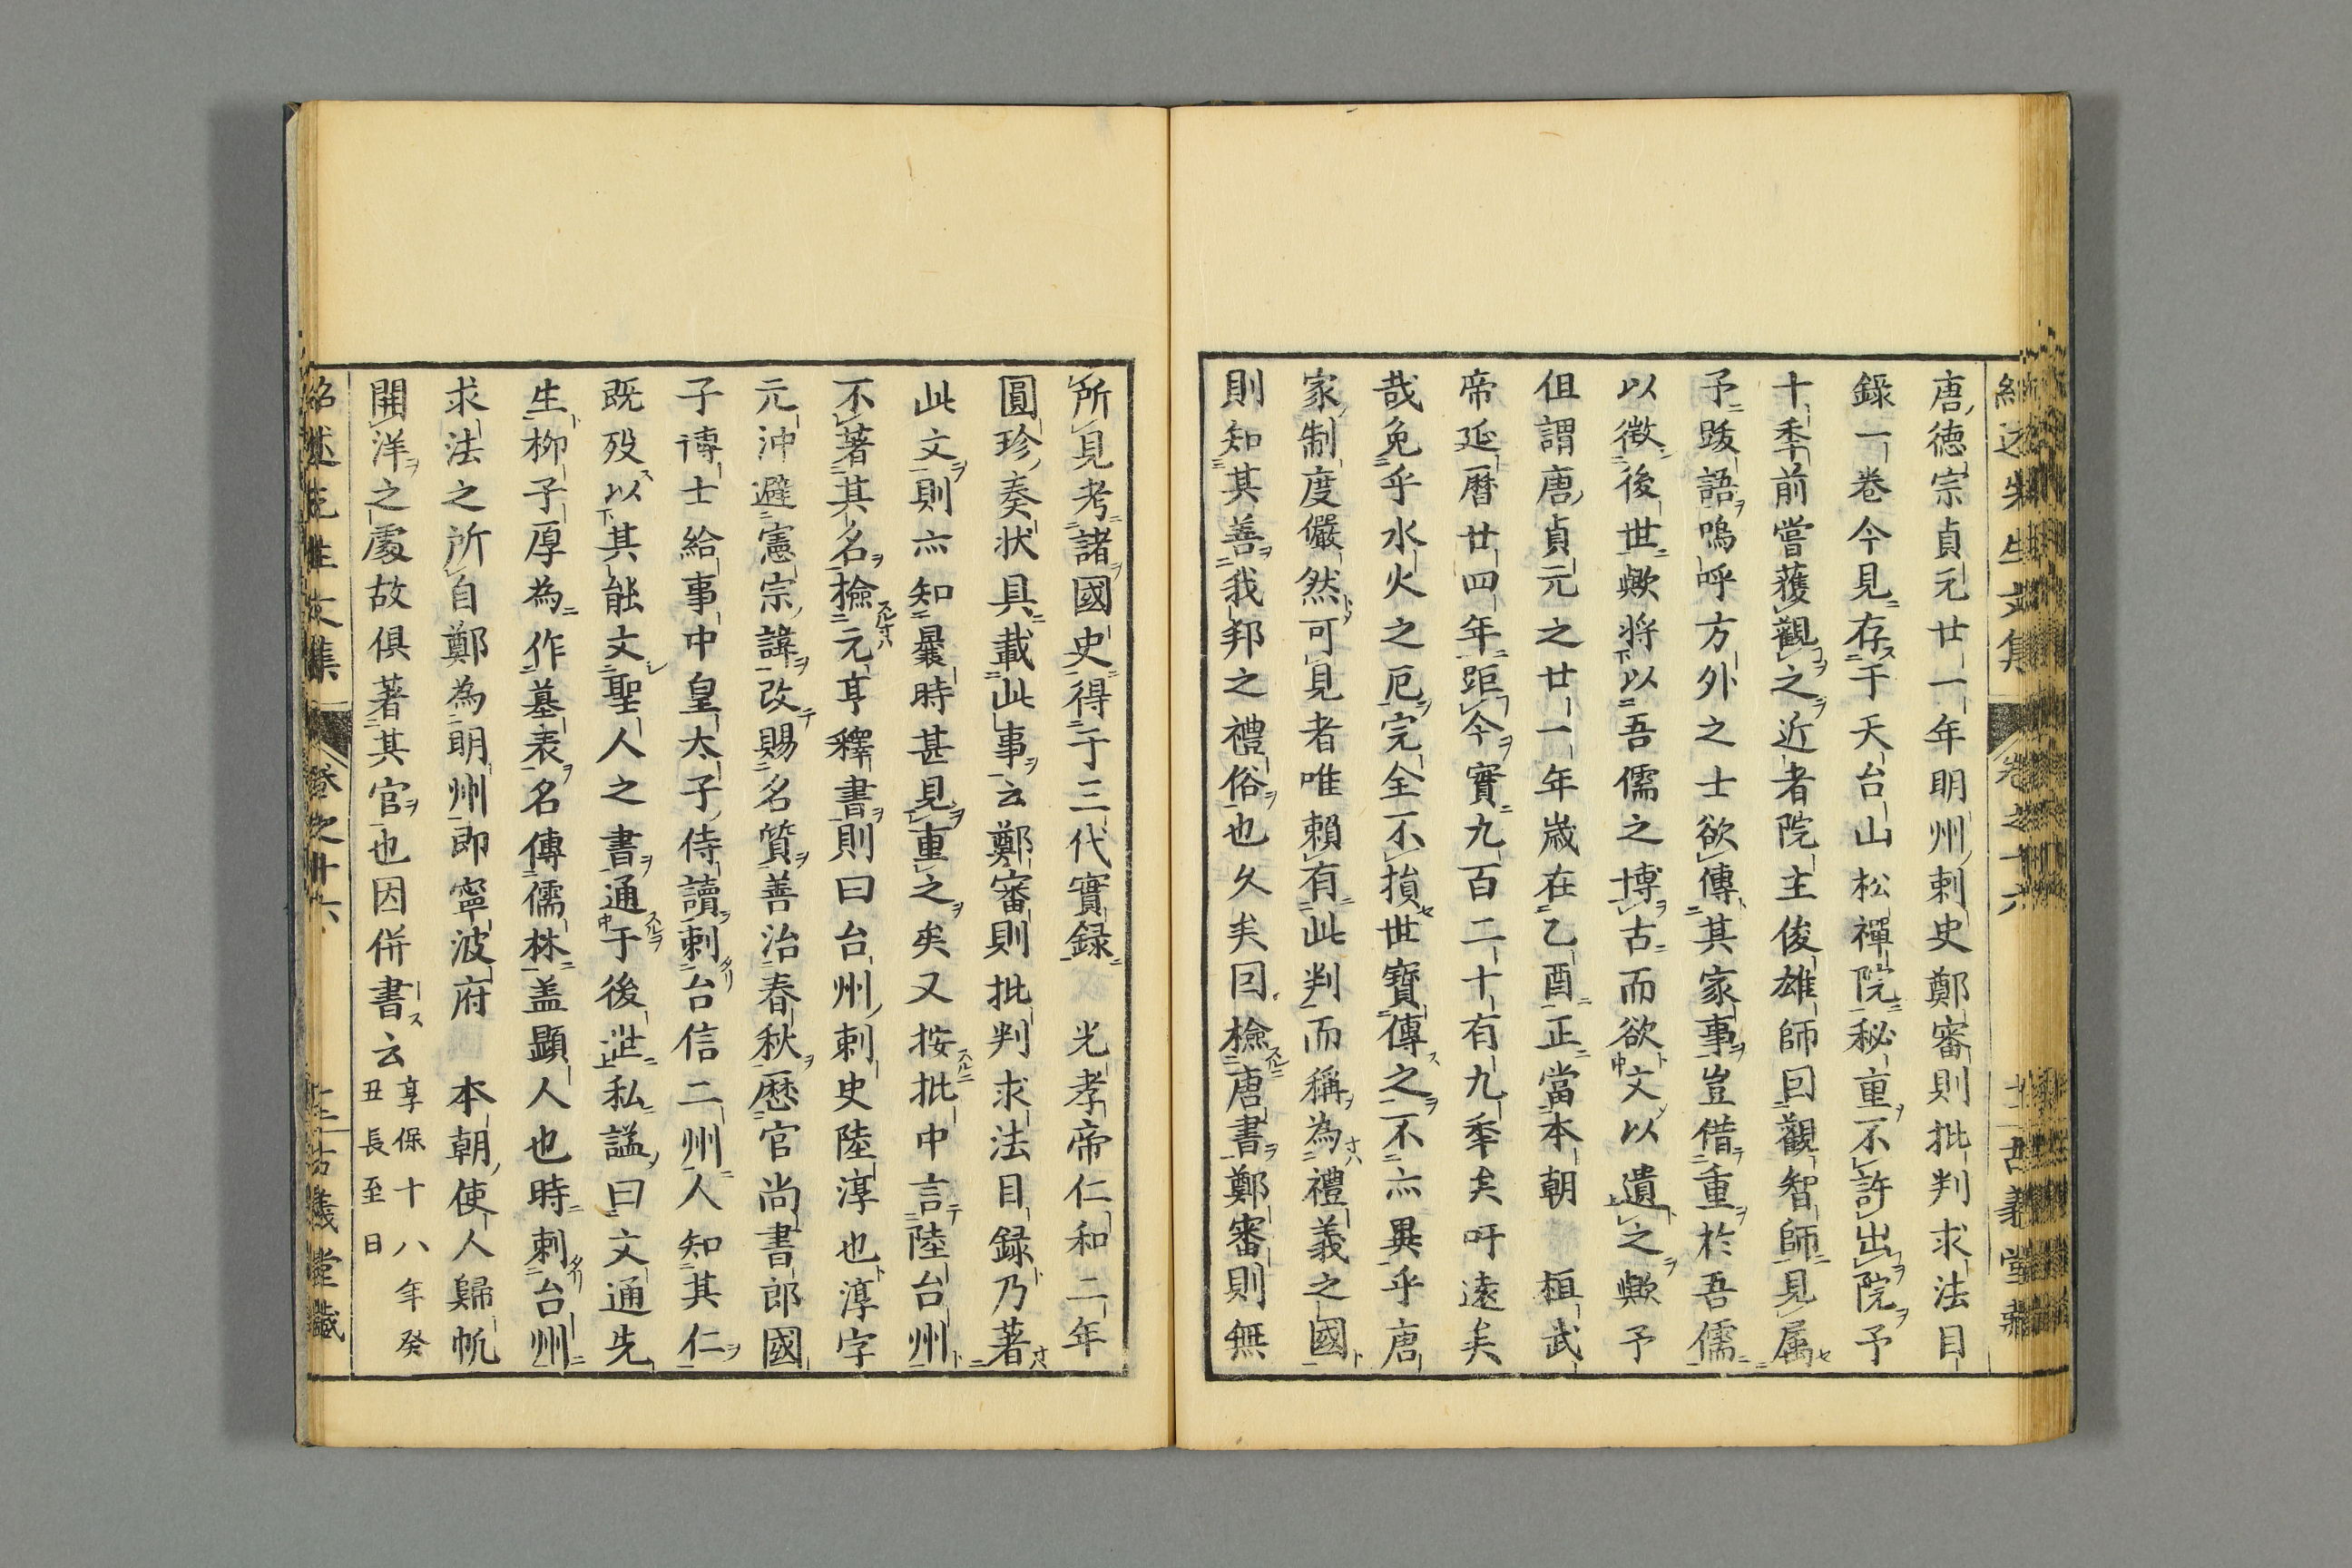 唐德宗貞元廿一年明州刺史鄭審則批判求法目
錄一卷今見存于天台山松禪院秘重不許出院予
十季前嘗獲觀之近者院主俊雄師囙觀智師見属
予跋語嗚呼方外之士欲傳其家事豈借重於吾儒
以徴後世歟將以吾儒之博古而欲文以遺之歟予
但謂唐貞元之廿一年歲在乙酉正當本朝 桓武
帝延暦廿四年距今實九百二十有九季矣吁遠矣
哉免乎水火之厄完全不損世寶傳之不亦異乎唐
家制度儼然可見者唯賴有此判而稱為禮義之國
則知其善我邦之禮俗也久矣囙檢唐書鄭審則無
所見考諸國史得于三代實録 光孝帝仁和二年
圓珍奏状具載此事云鄭審則批判求法目録乃著
此文則亦知曩時甚見重之矣又按批中言陸台州
不著其名檢元亨釋書則曰台州刺史陸淳也淳字
元沖避憲宗諱改賜名質善治春秋歷官尚書郎國
子博士給事中皇太子侍讀刺台信二州人知其仁
既歿以其能文聖人之書通于後泄私諡曰文通先
生柳子厚為作墓表名傳儒林盖顯人也時刺台州
求法之所自鄭為明州即寧波府 本朝使人歸帆
開洋之處故俱著其官也因併書云享保十八年癸
丑長至日
紹述先生文集 卷之十六 古義堂藏